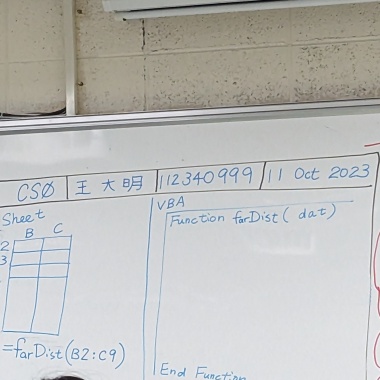 CSØ 王大明 112340999 11 Oct 2023
Sheet
B C
2
3
=farDist(B2:C9)
VBA
Function farDist( dat)
End Function